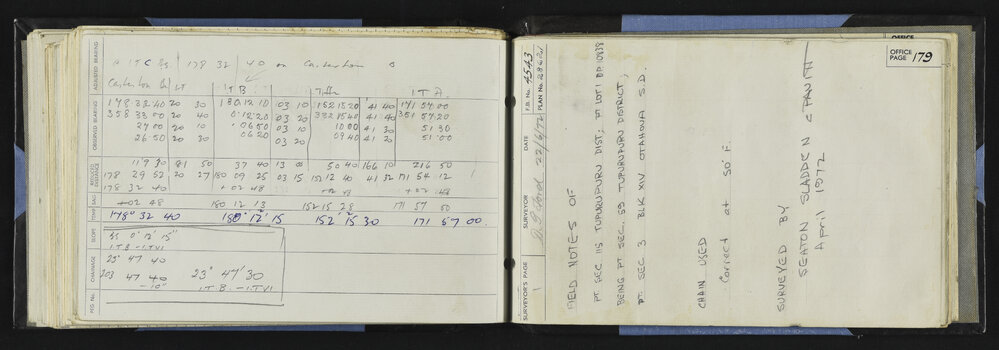 178 32 40 on Carterton
Carterton
I T B
I T A
178 32 40 20 30 180 12 10 03 10 152 15 20 41 40 171 57 00
358 33 00 20 40 0 12 20 03 20 332 15 40 41 40 351 57 20
27 00 20 10 06 50 03 10 10 00 41 30 51 30
26 50 20 30 06 20 03 20 09 40 41 20 51 00
11 9 30 81 50 37 40 13 50 40 166 10 216 50
178 29 52 20 27 180 09 25 03 15 152 12 40 41 32 171 54 12
178 32 40 +02 48 +02 48 +02 48
+02 48 180 12 13 152 15 28 171 57 00
178° 32 40 180° 12' 15 152 15 30 171 57 00
0° 12' 15"
I.T.B - I.TVI
23° 47 40
203 47 40
-10"
23° 47' 30
I.T.B. - I.TVI
ADJUSTED BEARING
OBSERVED BEARING
REDUCED DISTANCE
SAG
TEMP
SLOPE
CHAINAGE
MS No.
OFFICE
OFFICE PAGE 179
F.B. No. 4543
PLAN No.
DATE 22/6/72
SURVEYOR
SURVEYOR'S PAGE 1
FIELD NOTES OF
PT SEC 115 TUPURUPURU DIST; PT LOT 1 DP 10838
BEING PT SEC. 59 TUPURUPURU DISTRICT;
PT SEC 3 BLK XIV OTAHOUA S.D.
CHAIN USED
Correct at 50° F.
SURVEYED BY
SEATON SLADDEN & PAVITT
April 1972